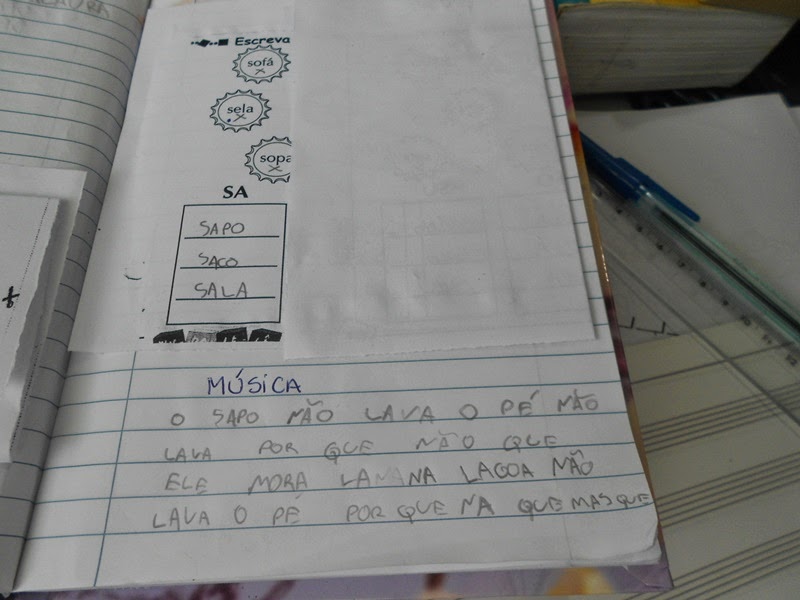 Escreva
sofá
sela
sopa
SA
SAPO
SACO
SALA
MÚSICA
O SAPO NÃO LAVA O PÉ NÃO
LAVA POR QUE NÃO QUE
ELE MORA LA NA LAGOA NÃO
LAVA O PÉ POR QUE NA QUE MAS QUE